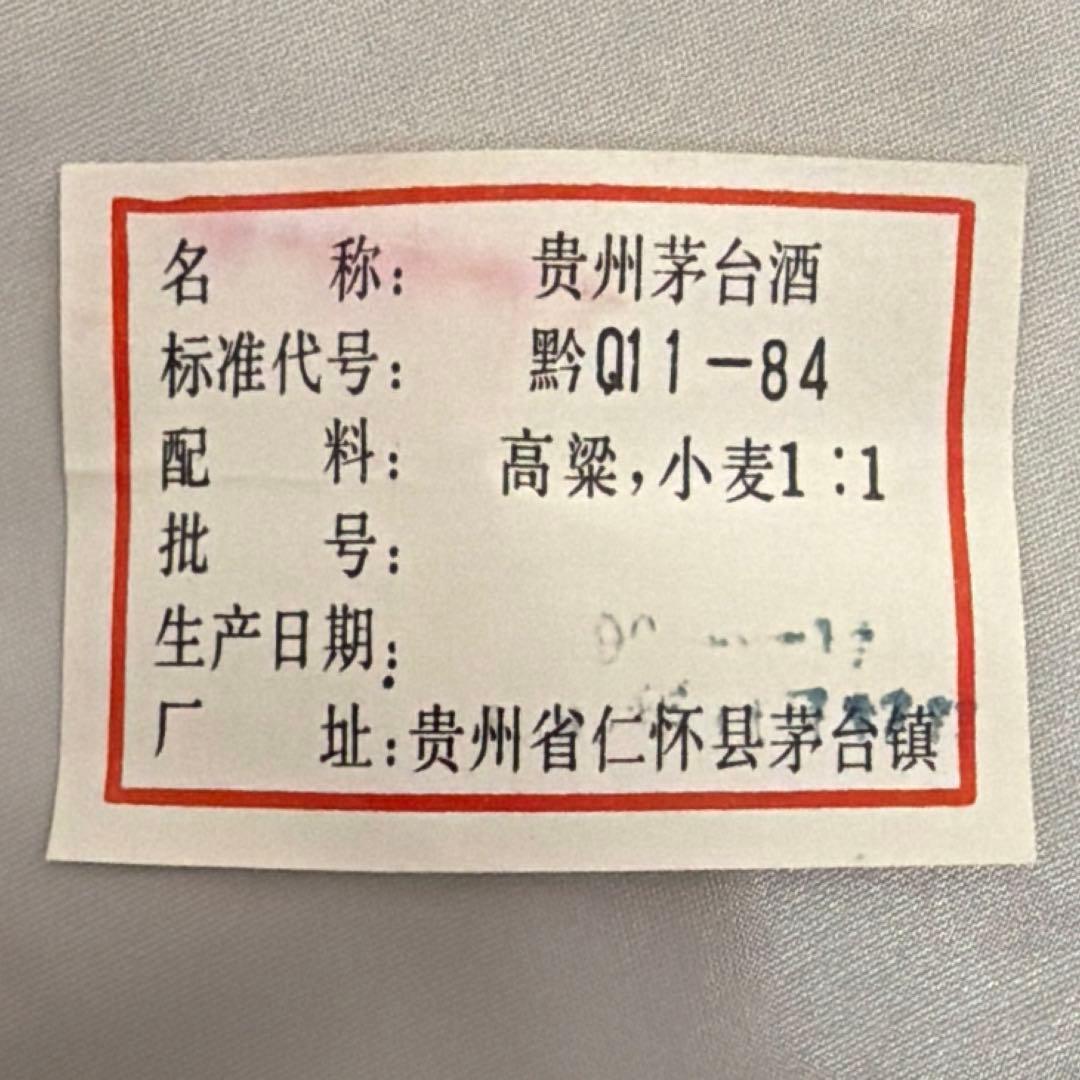 名 称： 贵州茅台酒
标准代号： 黔Q11-84
配 料： 高粱，小麦1:1
批 号：
生产日期：
厂 址：贵州省仁怀县茅台镇